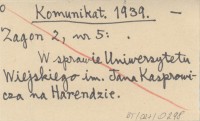 Komunikat. 1939. —
Zagon 2, nr 5: .
W sprawie Uniwersytetu
Wiejskiego im. Jana Kasprowi-
cza na Harendzie.